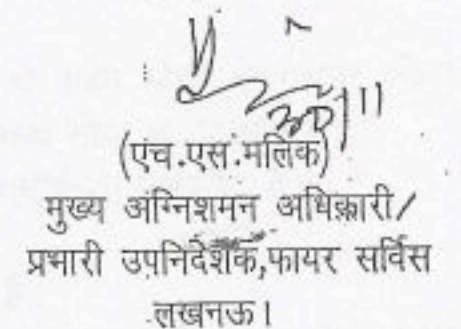 (एच.एस.मलिक)
मुख्य अग्निशमन अधिकारी/
प्रभारी उपनिदेशक,फायर सर्विस
लखनऊ।